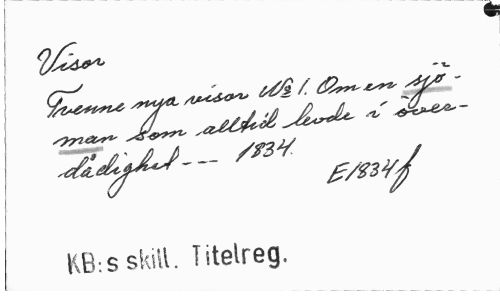 Visor
Tvenne nya visor No 1. Om en sjö-
man som alltid levde i över-
dådighet --- 1834.
E1834f
KB:s skill. Titelreg.